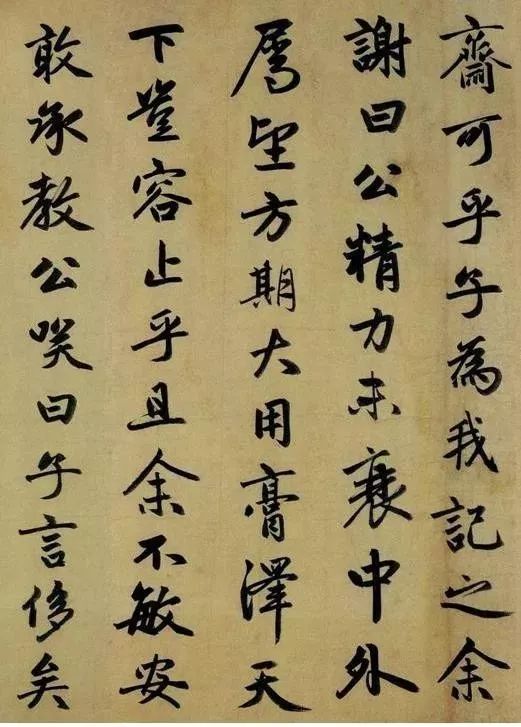 齋可乎子為我記之余
謝曰公精力未衰中外
属望方期大用膏澤天
下豈容止乎且余不敏安
敢承教公咲曰子言侈矣